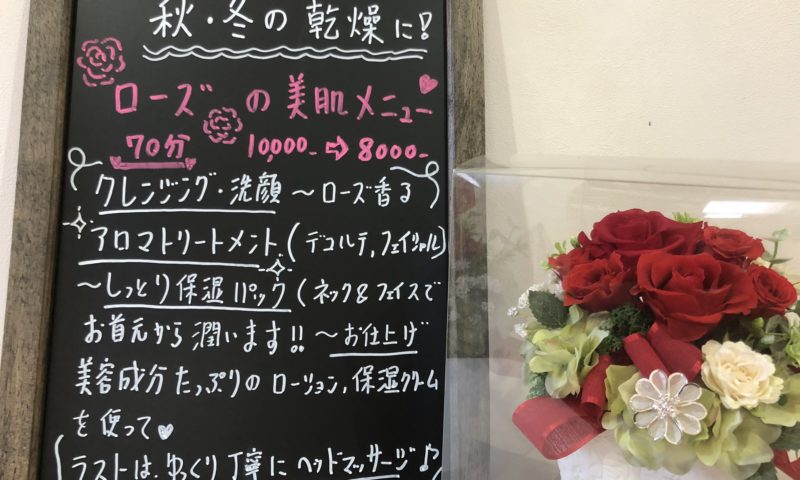 秋・冬の乾燥に!
ローズの美肌メニュー
70分 10,000- ⇨ 8000-
クレンジング・洗顔 〜ローズ香る
アロマトリートメント.(デコルテ,フェイシャル)
〜しっとり保湿パック(ネック&フェイスで
お首元から潤います!!〜お仕上げ
美容成分たっぷりのローション,保湿クリーム
を使って♥
(ラストは、ゆっくり丁寧にヘッドマッサージ♪)